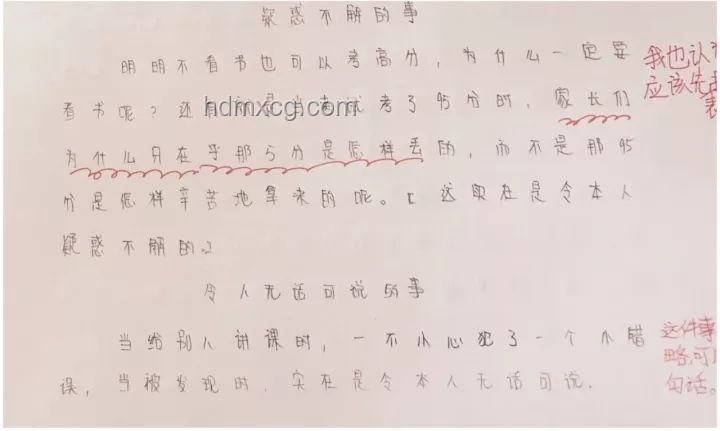 疑惑不解的事
明明不看书也可以考高分，为什么一定要
看书呢？还有 当考试考了95分时，家长们
为什么只在乎那5分是怎样丢的，而不是那95
分是怎样辛苦地拿来的呢。[这实在是令本人
疑惑不解的。]
令人无话可说的事
当给别人讲课时，一不小心犯了一个小错
误，当被发现时，实在是令本人无话可说。
我也认为
应该先
这件事
略，可
句话。
hdmxcg.com